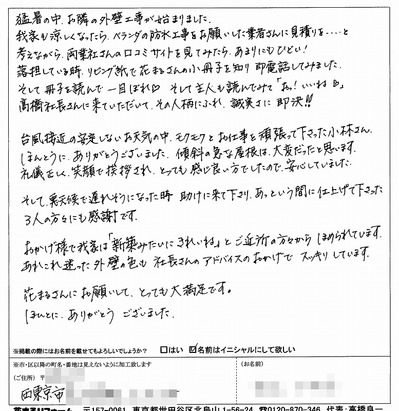 猛暑の中、お隣の外壁工事が始まりました。
我家も涼しくなったら、ベランダの防水工事をお願いした業者さんに見積りを‥‥と
考えながら、両業社さんの口コミサイトを見てみたら、あまりにもひどい!
落担している時、リビング紙で花まるさんの小冊子を知り 即電話してみました。
そして冊子を読んで一目ぼれ♡ そして主人も読んでみて「お!いいね♡」
高橋社長さんに来ていただいて、その人柄にふれ、誠実さに即決!!
台風接近の安定しないお天気の中、モクモクとお仕事を頑張って下さった小林さん。
ほんとうに、ありがとうございました。傾斜の急な屋根は、大変だったと思います。
礼儀正しく、笑顔で挨拶され、とっても感じ良い方でしたので、安心していました。
そして、悪天候で遅れそうになった時 助けに来て下さり、あっという間に仕上げて下さった
3人の方々にも感謝です。
おかげ様で我家は「新築みたいにきれいね」とご近所の方々から ほめられています。
あれこれ迷った外壁の色も 社長さんのアドバイスのおかげで スッキリしています。
花まるさんにお願いして、とっても大満足です。
ほんとに、ありがとう ございました。
※掲載の際にはお名前を載せてもよろしいでしょうか? □はい ☑名前はイニシャルにして欲しい
※市・区以降の町名・番地は見えないように加工致します
(ご住所) 〒
(お名前)
西東京市
〒157-0061 東京都世田谷区北烏山1-56-24 ☎0120-870-346 代表:高橋良一